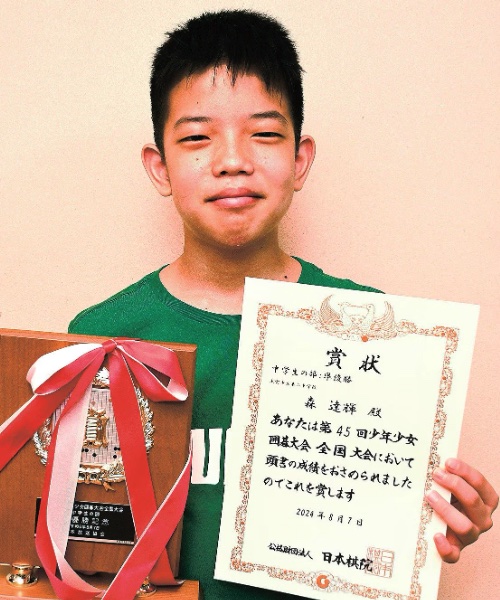 賞状
中学生の部:準優勝
森 達輝 殿
あなたは第45回少年少女
囲碁大会 全国 大会において
頭書の成績をおさめられました
のでこれを賞します
2024年8月7日
公益財団法人 日本棋院
中学生の部
U